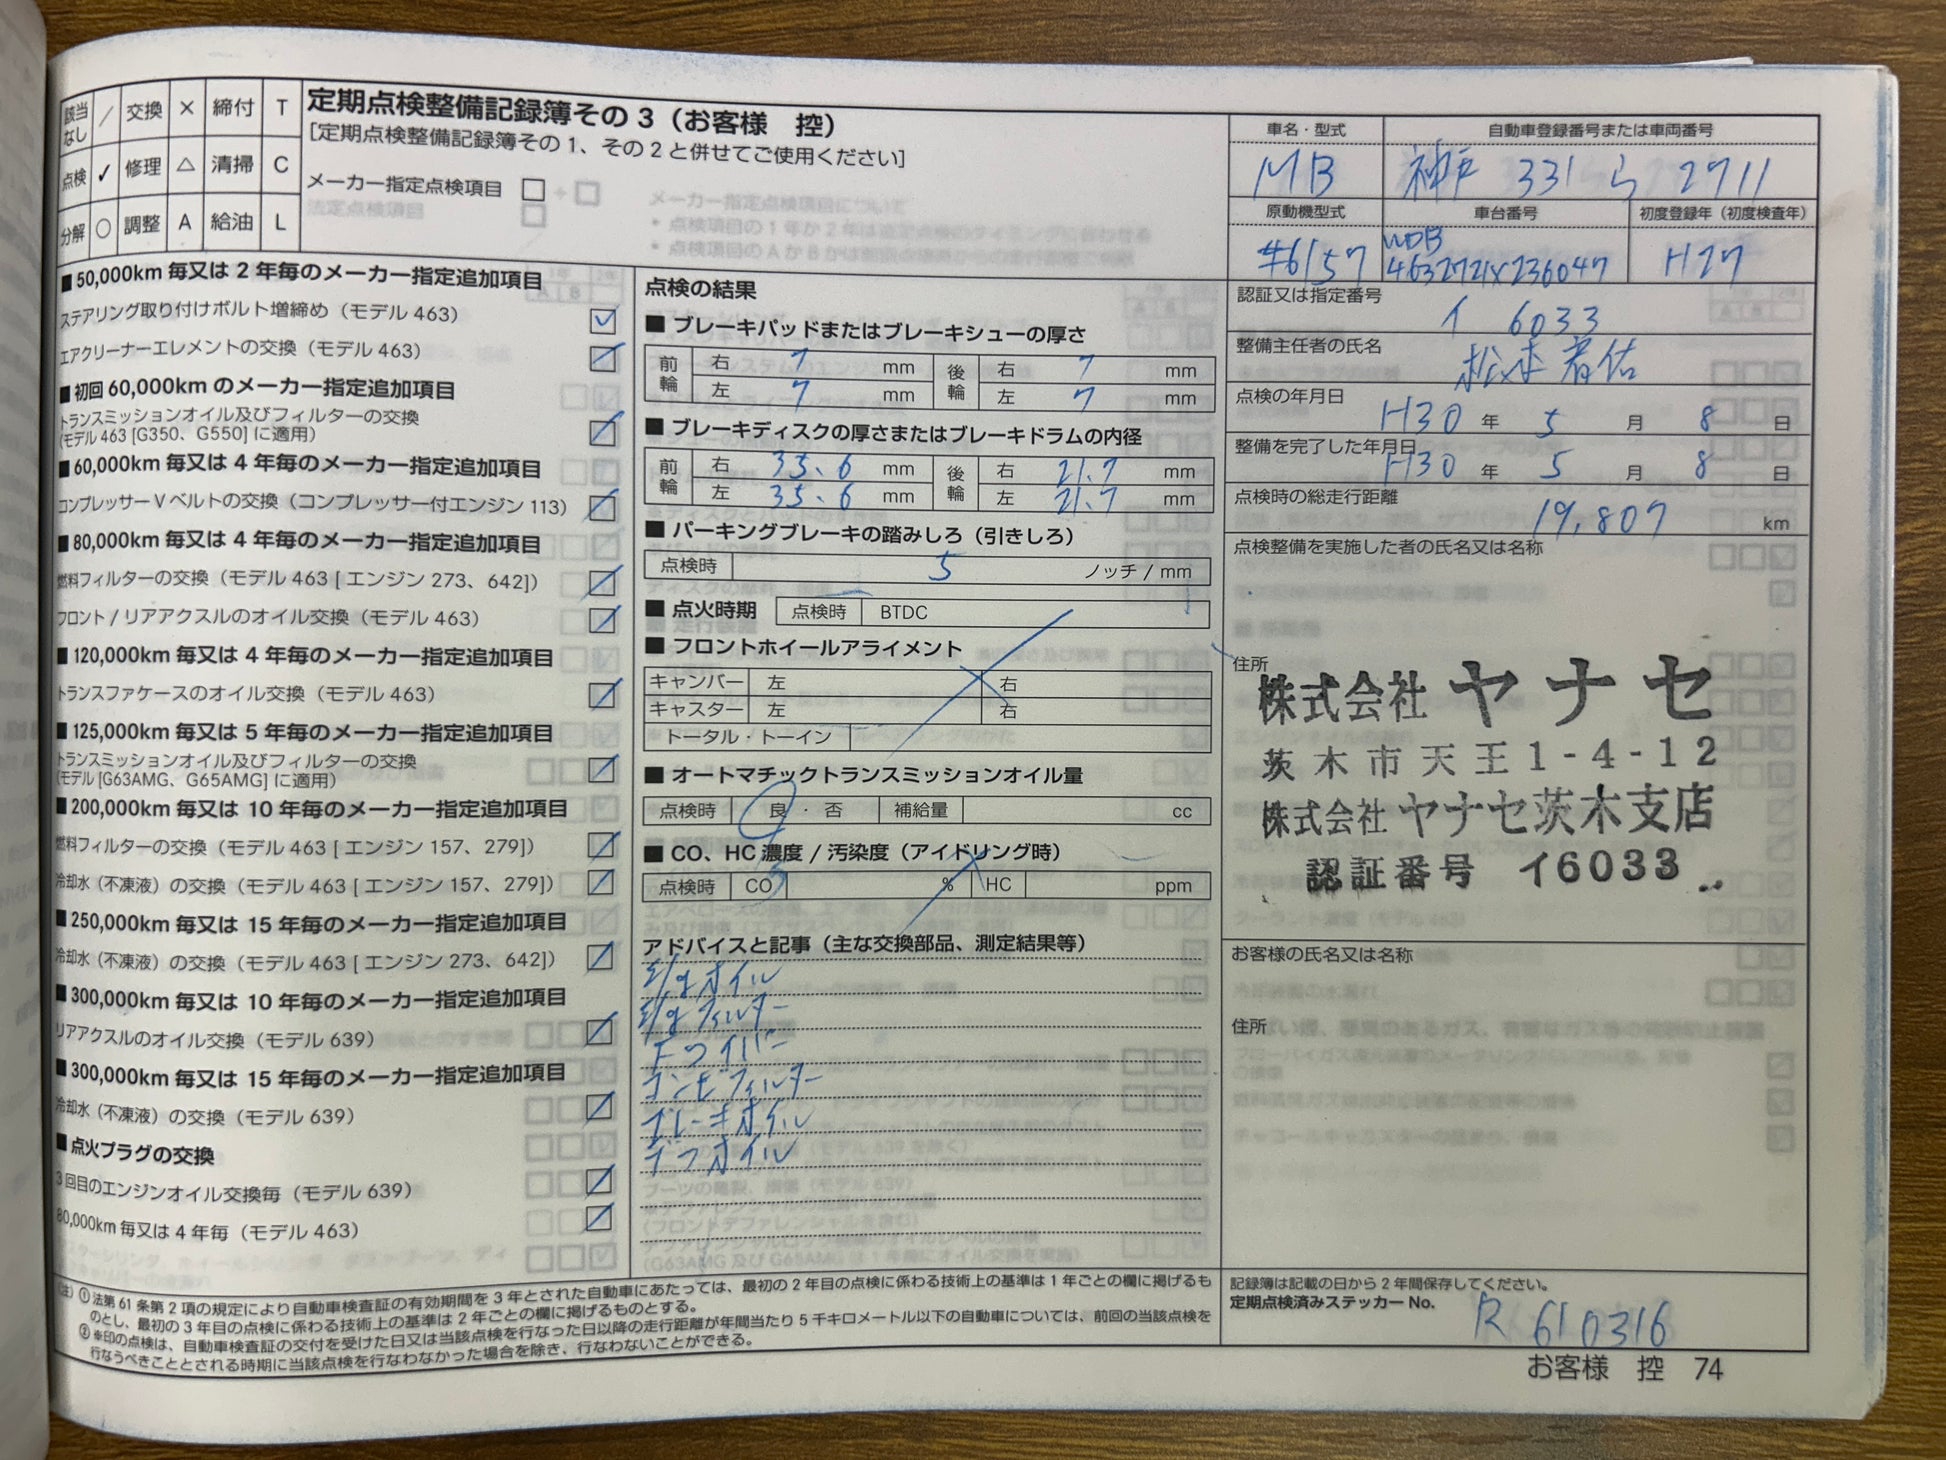 該当なし ／ 交換 × 締付 T
点検 ✓ 修理 △ 清掃 C
分解 ○ 調整 A 給油 L
定期点検整備記録簿その3（お客様 控）
［定期点検整備記録簿その1、その2と併せてご使用ください］
メーカー指定点検項目 □
■50,000km毎又は2年毎のメーカー指定追加項目
ステアリング取り付けボルト増締め（モデル463） ✓
エアクリーナーエレメントの交換（モデル463） ／
■初回60,000kmのメーカー指定追加項目
トランスミッションオイル及びフィルターの交換
（モデル463 [G350、G550] に適用） ／
■60,000km毎又は4年毎のメーカー指定追加項目
コンプレッサーVベルトの交換（コンプレッサー付エンジン113） ／
■80,000km毎又は4年毎のメーカー指定追加項目
燃料フィルターの交換（モデル463 [ エンジン273、642]） ／
フロント / リアアクスルのオイル交換（モデル463） ／
■120,000km毎又は4年毎のメーカー指定追加項目
トランスファケースのオイル交換（モデル463） ／
■125,000km毎又は5年毎のメーカー指定追加項目
トランスミッションオイル及びフィルターの交換
（モデル [G63AMG、G65AMG] に適用） ／
■200,000km毎又は10年毎のメーカー指定追加項目
燃料フィルターの交換（モデル463 [ エンジン157、279]） ／
冷却水（不凍液）の交換（モデル463 [ エンジン157、279]） ／
■250,000km毎又は15年毎のメーカー指定追加項目
冷却水（不凍液）の交換（モデル463 [ エンジン273、642]） ／
■300,000km毎又は10年毎のメーカー指定追加項目
リアアクスルのオイル交換（モデル639） ／
■300,000km毎又は15年毎のメーカー指定追加項目
冷却水（不凍液）の交換（モデル639） ／
■点火プラグの交換
3回目のエンジンオイル交換毎（モデル639） ／
80,000km毎又は4年毎（モデル463） ／
点検の結果
■ブレーキパッドまたはブレーキシューの厚さ
前輪 右 7 mm 後輪 右 7 mm
左 7 mm 左 7 mm
■ブレーキディスクの厚さまたはブレーキドラムの内径
前輪 右 35.6 mm 後輪 右 21.7 mm
左 35.6 mm 左 21.7 mm
■パーキングブレーキの踏みしろ（引きしろ）
点検時 5 ノッチ / mm
■点火時期 点検時 BTDC
■フロントホイールアライメント
キャンバー 左 右
キャスター 左 右
トータル・トーイン
■オートマチックトランスミッションオイル量
点検時 良 ・ 否 補給量 cc
■CO、HC濃度 / 汚染度（アイドリング時）
点検時 CO % HC ppm
アドバイスと記事（主な交換部品、測定結果等）
E/gオイル
E/gフィルター
F ワイパー
ゴミフィルター
ブレーキオイル
デフオイル
車名・型式 自動車登録番号または車両番号
MB 神戸 331 ら 2711
原動機型式 車台番号 初度登録年（初度検査年）
#6157 WDB4632721X236047 H27
認証又は指定番号
イ 6033
整備主任者の氏名
点検の年月日
H30 年 5 月 8 日
整備を完了した年月日
H30 年 5 月 8 日
点検時の総走行距離
19,807 km
点検整備を実施した者の氏名又は名称
住所
株式会社 ヤナセ
茨木市天王1-4-12
株式会社 ヤナセ茨木支店
認証番号 イ6033
お客様の氏名又は名称
住所
記録簿は記載の日から2年間保存してください。
定期点検済みステッカーNo.
R 610316
（注）① 法第61条第2項の規定により自動車検査証の有効期間を3年とされた自動車にあたっては、最初の2年目の点検に係わる技術上の基準は1年ごとの欄に掲げるも
のとし、最初の3年目の点検に係わる技術上の基準は2年ごとの欄に掲げるものとする。
② ※印の点検は、自動車検査証の交付を受けた日又は当該点検を行なった日以降の走行距離が年間当たり5千キロメートル以下の自動車については、前回の当該点検を
行なうべきこととされる時期に当該点検を行なわなかった場合を除き、行なわないことができる。
お客様 控 74